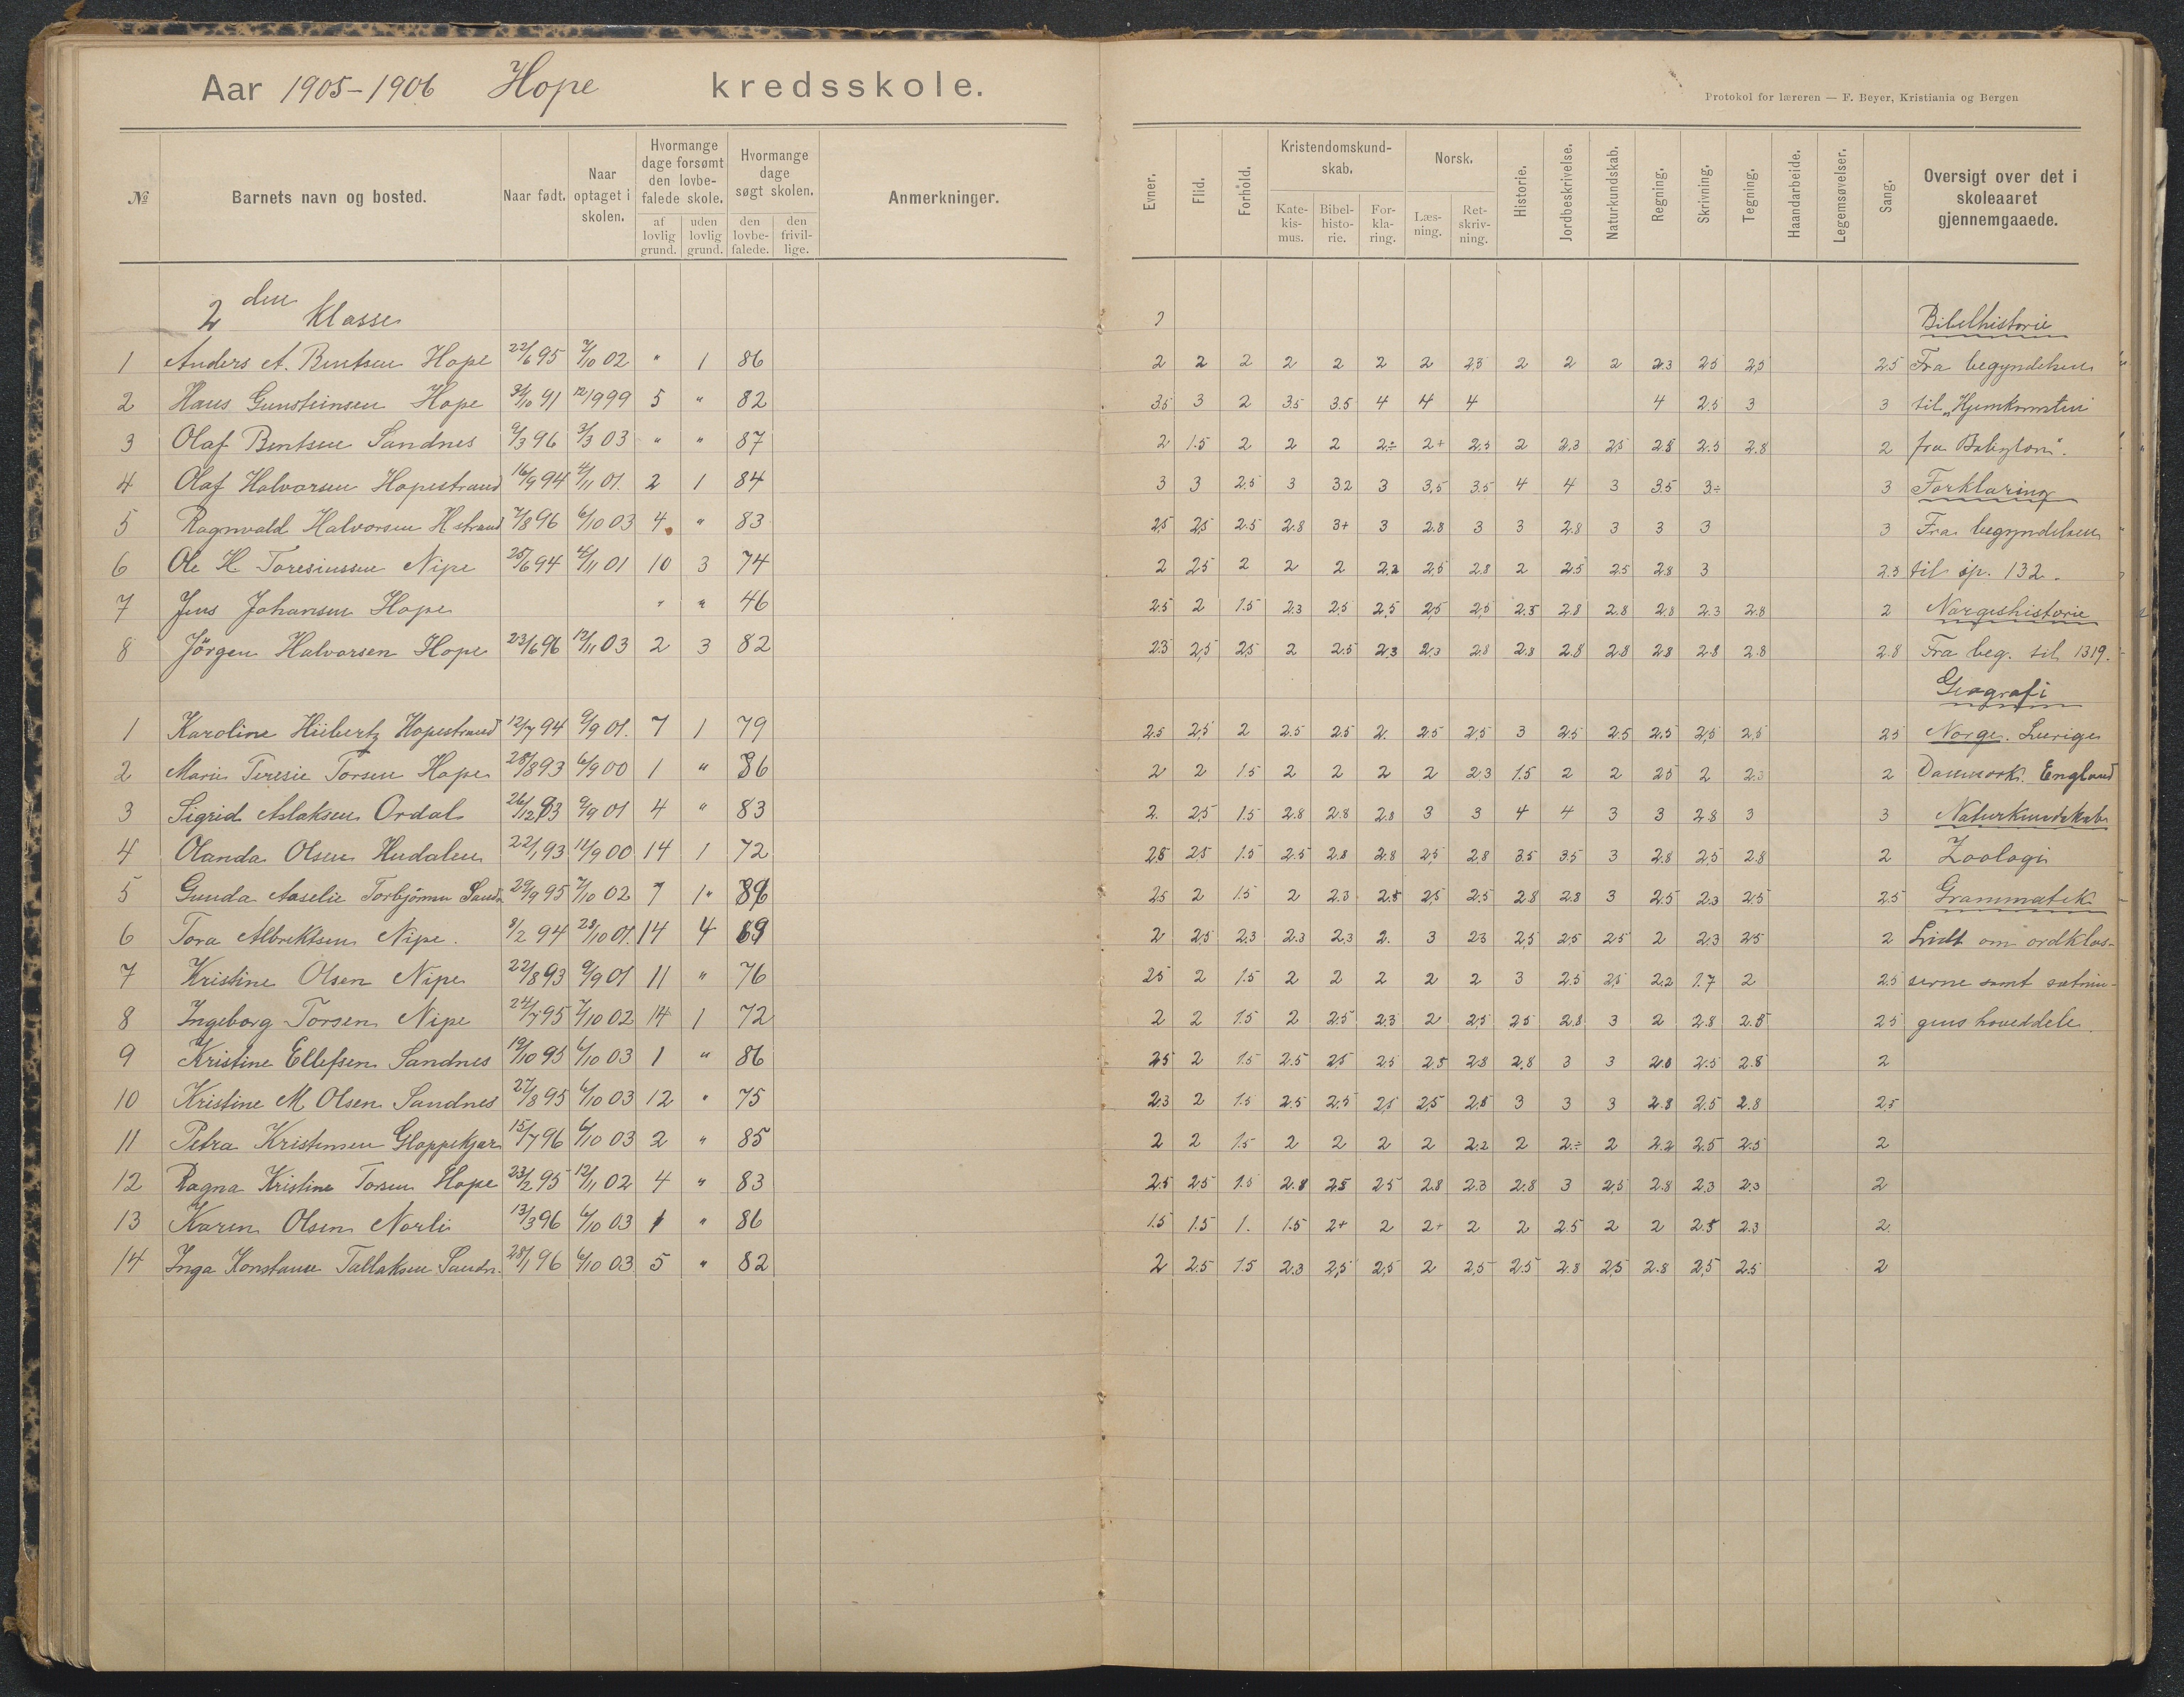 Aar 1905-1906 Hope kredsskole.
Protokol for læreren — F. Beyer, Kristiania og Bergen
№ Barnets navn og bosted. Naar født. Naar optaget i skolen. Hvormange dage forsømt den lovbefalede skole. af lovlig grund. uden lovlig grund. Hvormange dage søgt skolen. den lovbefalede. den frivillige. Anmerkninger.
Evner. Flid. Forhold. Kristendomskundskab. Katekismus. Bibelhistorie. Forklaring. Norsk. Læsning. Retskrivning. Historie. Jordbeskrivelse. Naturkundskab. Regning. Skrivning. Tegning. Haandarbeide. Legemsøvelser. Sang. Oversigt over det i skoleaaret gjennemgaaede.
2 den Klasse Bibelhistorie
1 Anders A. Bentsen Hope 22/6 95 7/10 02 " 1 86 2 2 2 2 2 2 2 2,3 2 2 2 2.3 2.5 2,5 2.5 Fra begyndelsen
2 Hans Gunsteinsen Hope 31/10 91 12/9 99 5 " 82 3.5 3 2 3.5 3.5 4 4 4 4 2.5 3 3 til "Hjemkomsten
3 Olaf Bentsen Sandnes 9/3 96 3/3 03 " " 87 2 1.5 2 2 2 2÷ 2+ 2.5 2 2.3 2,5 2.8 2.5 2.8 2 fra Babylon".
4 Olaf Halvorsen Hopestrand 16/9 94 4/11 01. 2 1 84 3 3 2.5 3 3.2 3 3,5 3.5 4 4 3 3.5 3÷ 3 Forklaring
5 Ragnvald Halvorsen Hstrand 7/8 96 6/10 03 4 " 83 2,5 2,5 2.5 2.8 3+ 3 2.8 3 3 2.8 3 3 3 3 Fra begyndelsen
6 Ole H. Toresiussen Nipe 25/6 94 4/11 01 10 3 74 2 2,5 2 2 2 2.3 2,5 2.8 2 2.5 2.5 2.8 3 2.3 til sp. 132.
7 Jens Johansen Hope " " 46 2.5 2 1.5 2.3 2.5 2,5 2,5 2,5 2.5 2.8 2.8 2.8 2.3 2.8 2 Norgeshistorie
8 Jörgen Halvorsen Hope 23/6 96 12/11 03 2 3 82 2.3 2,5 2,5 2 2.5 2.3 2,3 2.8 2.8 2.8 2.8 2.8 2.8 2.8 2.8 Fra beg. til 1319.
Geografi
1 Karoline Hiibertz Hopestrand 12/7 94 9/9 01. 7 1 79 2.5 2,5 2 2.5 2.5 2. 2.5 2,5 3 2.5 2.5 2.5 2,5 2,5 2.5 Norge. Sverige
2 Marie Teresie Torsen Hope 28/8 93 6/9 00 1 " 86 2 2 1.5 2 2 2 2 2.3 1.5 2 2 2.5 2 2.3 2 Danmark. England
3 Sigrid Aslaksen Ordal 26/12 93 9/9 01 4 " 83 2. 2,5 1.5 2.8 2.8 2.8 3 3 4 4 3 3 2.8 3 3 Naturkundskab
4 Olanda Olsen Hudalen 22/1 93 12/9 00 14 1 72 2.5 2.5 1.5 2.5 2.8 2.8 2.5 2.8 3.5 3.5 3 2.8 2.5 2.8 2 Zoologi
5 Gunda Aaselie Torbjörnsen Sandn. 29/9 95 7/10 02 7 1" 2.5 2 1.5 2 2.3 2.5 2,5 2.5 2.8 2.8 3 2.5 2.3 2.5 2.5 Grammatik
6 Tora Albrektsen Nipe. 8/2 94 28/10 01. 14 4 69 2 2,5 2.3 2.3 2.3 2. 3 2.3 2,5 2.5 2.5 2 2.3 2.5 2 Lidt om ordklas-
7 Kristine Olsen Nipe 22/8 93 9/9 01 11 " 76 2.5 2 1.5 2 2 2 2 2 3 2.5 2,5 2.2 1.7 2 2.5 serne samt sætnin-
8 Ingeborg Torsen Nipe 24/7 95 7/10 02 14 1 72 2 2 1.5 2 2.5 2.3 2 2,5 2.5 2.8 3 2 2.8 2.8 2.5 gens hoveddele.
9 Kristine Ellefsen Sandnes 19/10 95 6/10 03 1 " 86 2.5 2 1.5 2.5 2.5 2.5 2.5 2.8 2.8 3 3 2.8 2.5 2.8 2
10 Kristine M. Olsen Sandnes 27/8 95 6/10 03 12 " 75 2.3 2 1.5 2.5 2.5 2,5 2,5 2,5 3 3 3 2.8 2.5 2.8 2,5
11 Petra Kristensen Gloppekjær 15/7 96 6/10 03 2 " 85 2 2 1.5 2 2 2 2 2.2 2 2÷ 2 2.2 2.5 2.5 2
12 Ragna Kristine Torsen Hope 23/2 95 12/11 02 4 " 83 2.5 2.5 1.5 2.8 2.5 2.5 2.8 2.3 2.8 3 2,5 2.8 2.3 2.3 2
13 Karen Olsen Norli 13/3 96 6/10 03 1 " 86 1.5 1.5 1. 1.5 2+ 2 2+ 2 2 2.5 2 2 2.5 2.3 2.
14 Inga Konstanse Tallaksen Sandn. 28/1 96 6/10 03 5 " 82 2 2.5 1.5 2.3 2,5 2,5 2 2,5 2.5 2.8 2,5 2.8 2,5 2.5 2